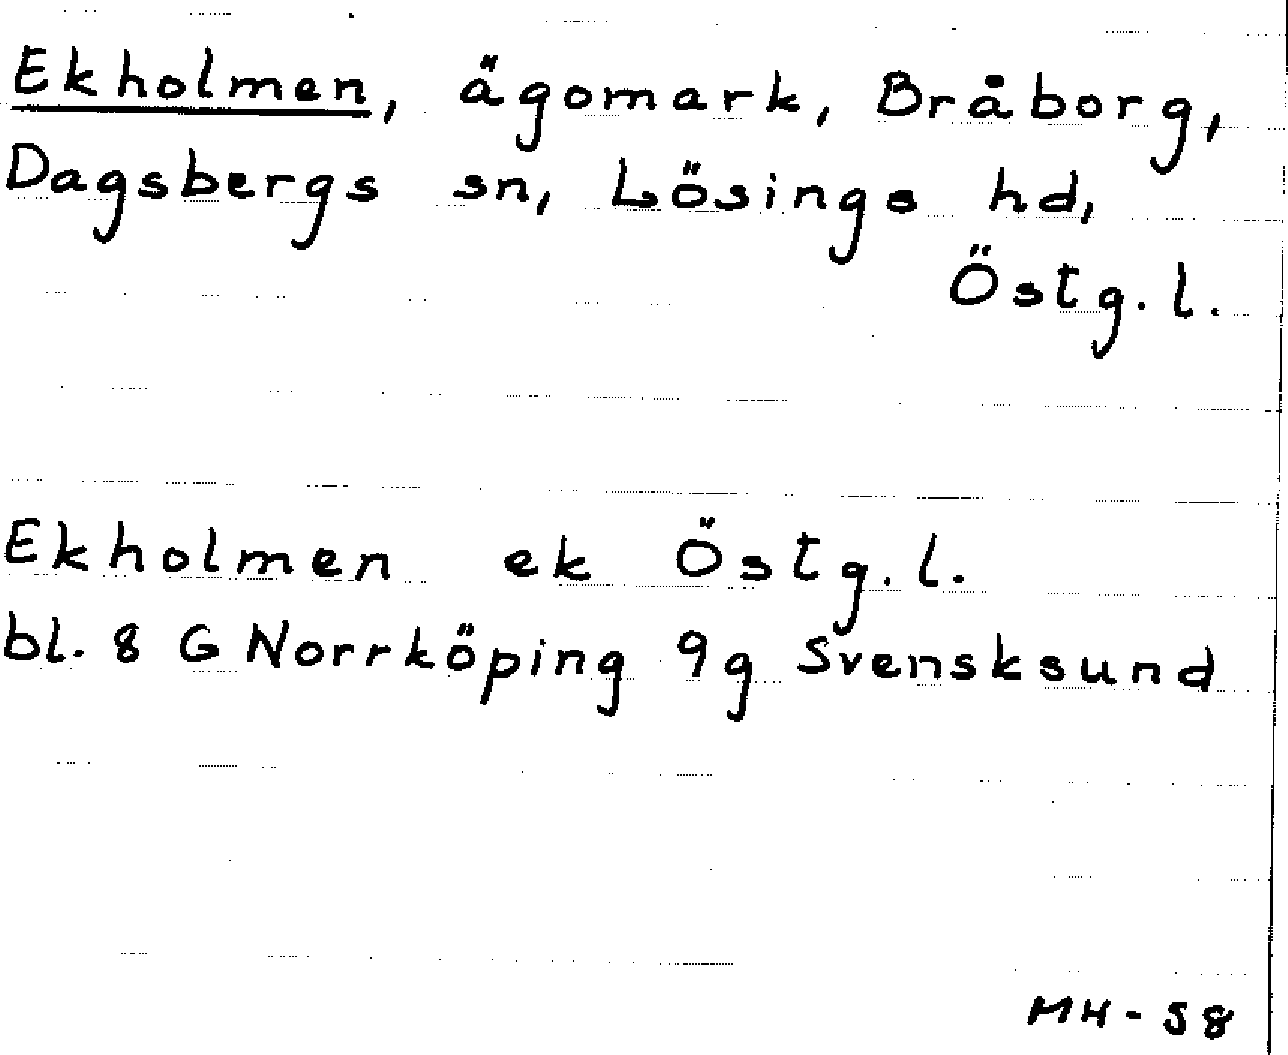 Ekholmen, ägomark, Bråborg,
Dagsbergs sn, Lösings hd,
Östg. l.
Ekholmen ek Östg. l.
bl. 8 G Norrköping 9g Svensksund
MH-58